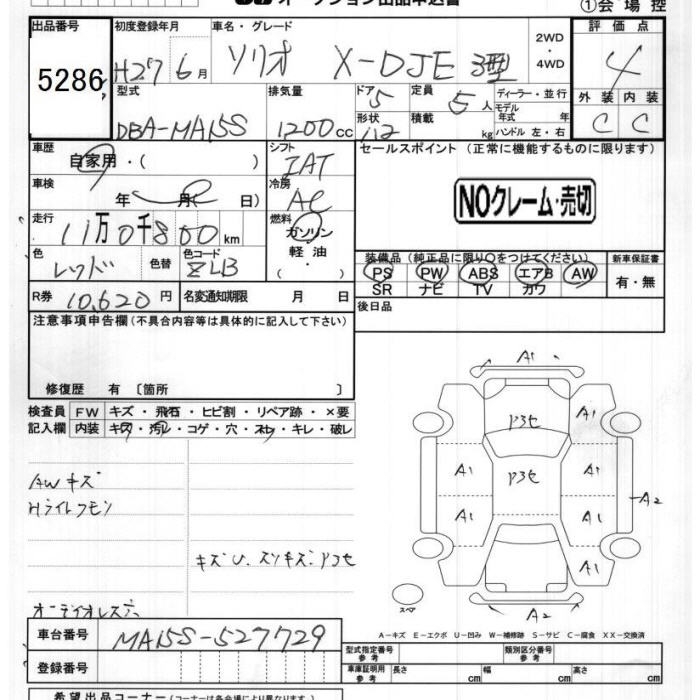 オークション出品申込書
①会場控
出品番号
5286
初度登録年月
H27 6月
車名・グレード
ソリオ X-DJE 3型
2WD
・
4WD
評価点
4
外装 内装
C C
型式
DBA-MA15S
排気量
1200cc
ドア
5
形状
定員
5人
積載
kg
ディーラー・並行
モデル
年式 年
ハンドル 左・右
車歴
自家用・( )
シフト
IAT
車検
年 月( )
冷房
AC
走行
11万0千800km
燃料
ガソリン
軽油
( )
色
レッド
色替
色コード
ZLB
R券
10,620円
名変通知期限 月 日
セールスポイント (正常に機能するものに限ります)
NOクレーム・売切
装備品 (純正品に限り○をつけてください)
PS PW ABS エアB AW
SR ナビ TV カワ
新車保証書
有・無
後日品
注意事項申告欄 (不具合内容等は具体的に記入して下さい)
修復歴 有 〔箇所 〕
検査員
記入欄
FW キズ・飛石・ヒビ割・リペア跡・×要
内装 キズ・汚れ・コゲ・穴・スレ・キレ・破レ
AWキズ
Hライトクモリ
キズU、スリキズ、アコセ
オーディオレス
A1
アコセ
A1
A1
アコセ
A1
A2
A1
A1
A1
A2
スペア
A-キズ E-エクボ U-凹み W-補修跡 S-サビ C-腐食 XX-交換済
車台番号
MA15S-527729
登録番号
型式指定番号
参考
類別区分番号
参考
車庫証明用
参考
長さ cm
幅 cm
高さ cm
希望出品コーナー (コーナーは各会場により異なります)